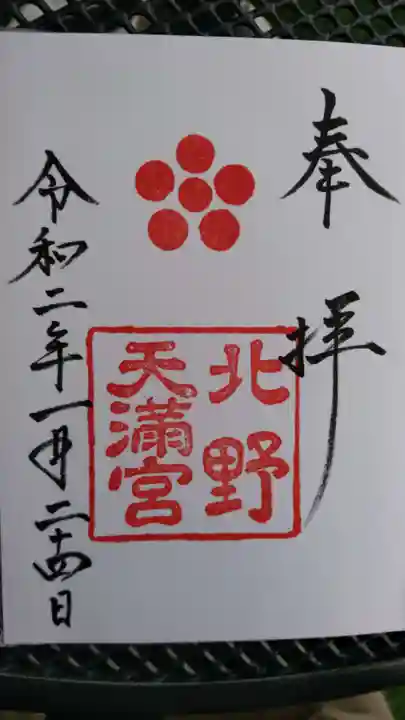 奉拝
北野
天満宮
令和二年一月二十四日